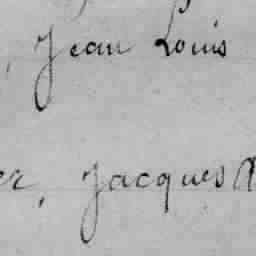 , Jean Louis
er, Jacques